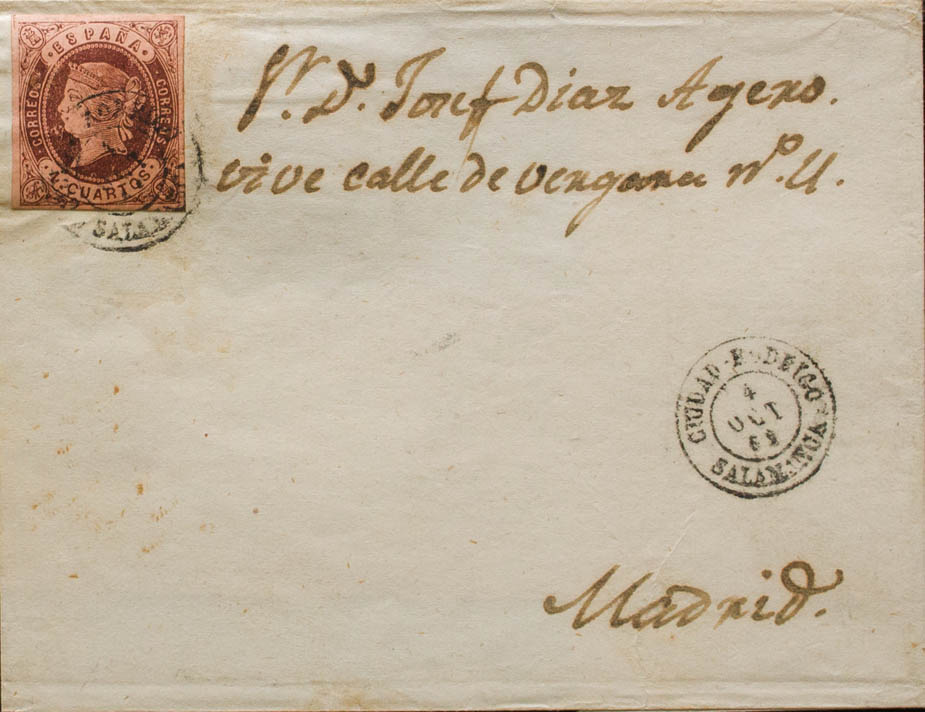 ESPAÑA
CORREOS CORREOS
4 CUARTOS.
SALAM
Dn. Josef Diaz Agero.
vive calle de vergara nº.
Madrid.
CIUDAD-RODRIGO
4
OCT
SALAMANCA